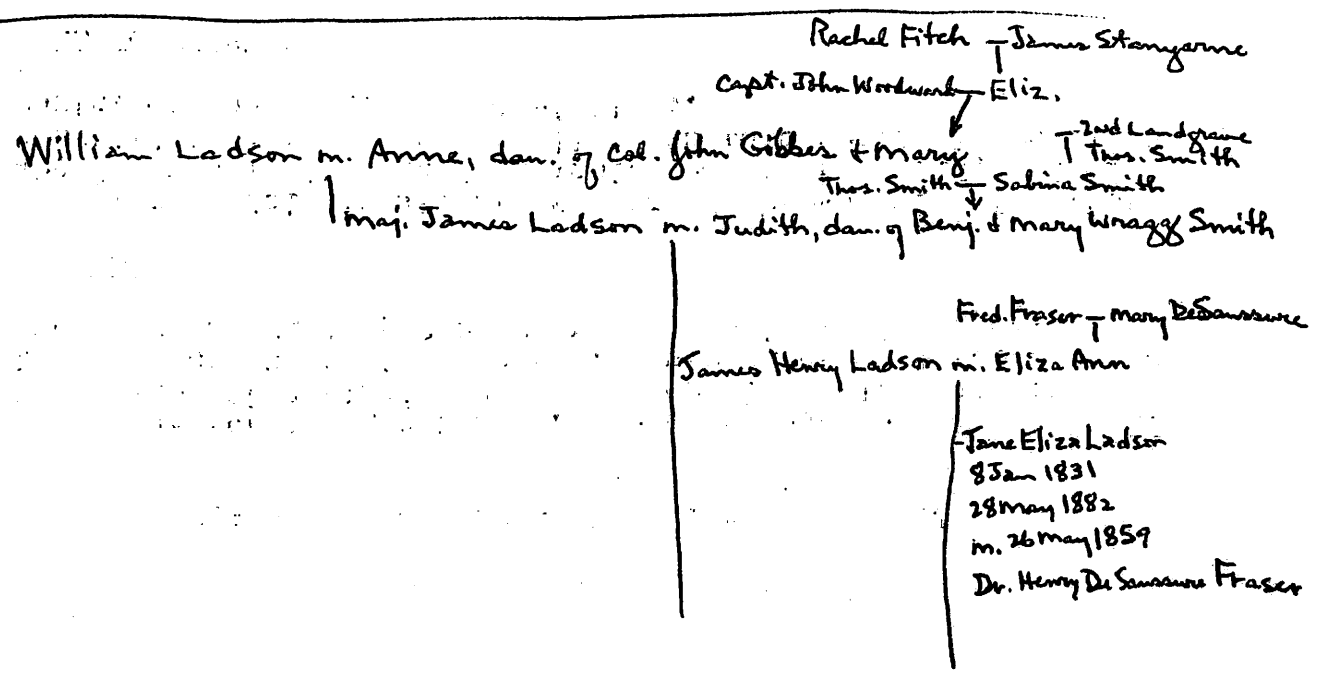 Rachel Fitch - James Stanyarne
Capt. John Woodward - Eliz.
2nd Landgrave
William Ladson m. Anne, dau. of Col. John Gibbes & Mary
Thos. Smith
Thos. Smith - Sabina Smith
Maj. James Ladson m. Judith, dau. of Benj. & Mary Wragg Smith
Fred. Fraser - Mary DeSaussure
James Henry Ladson m. Eliza Ann
- Jane Eliza Ladson
8 Jan 1831
28 May 1882
m. 26 May 1859
Dr. Henry De Saussure Fraser